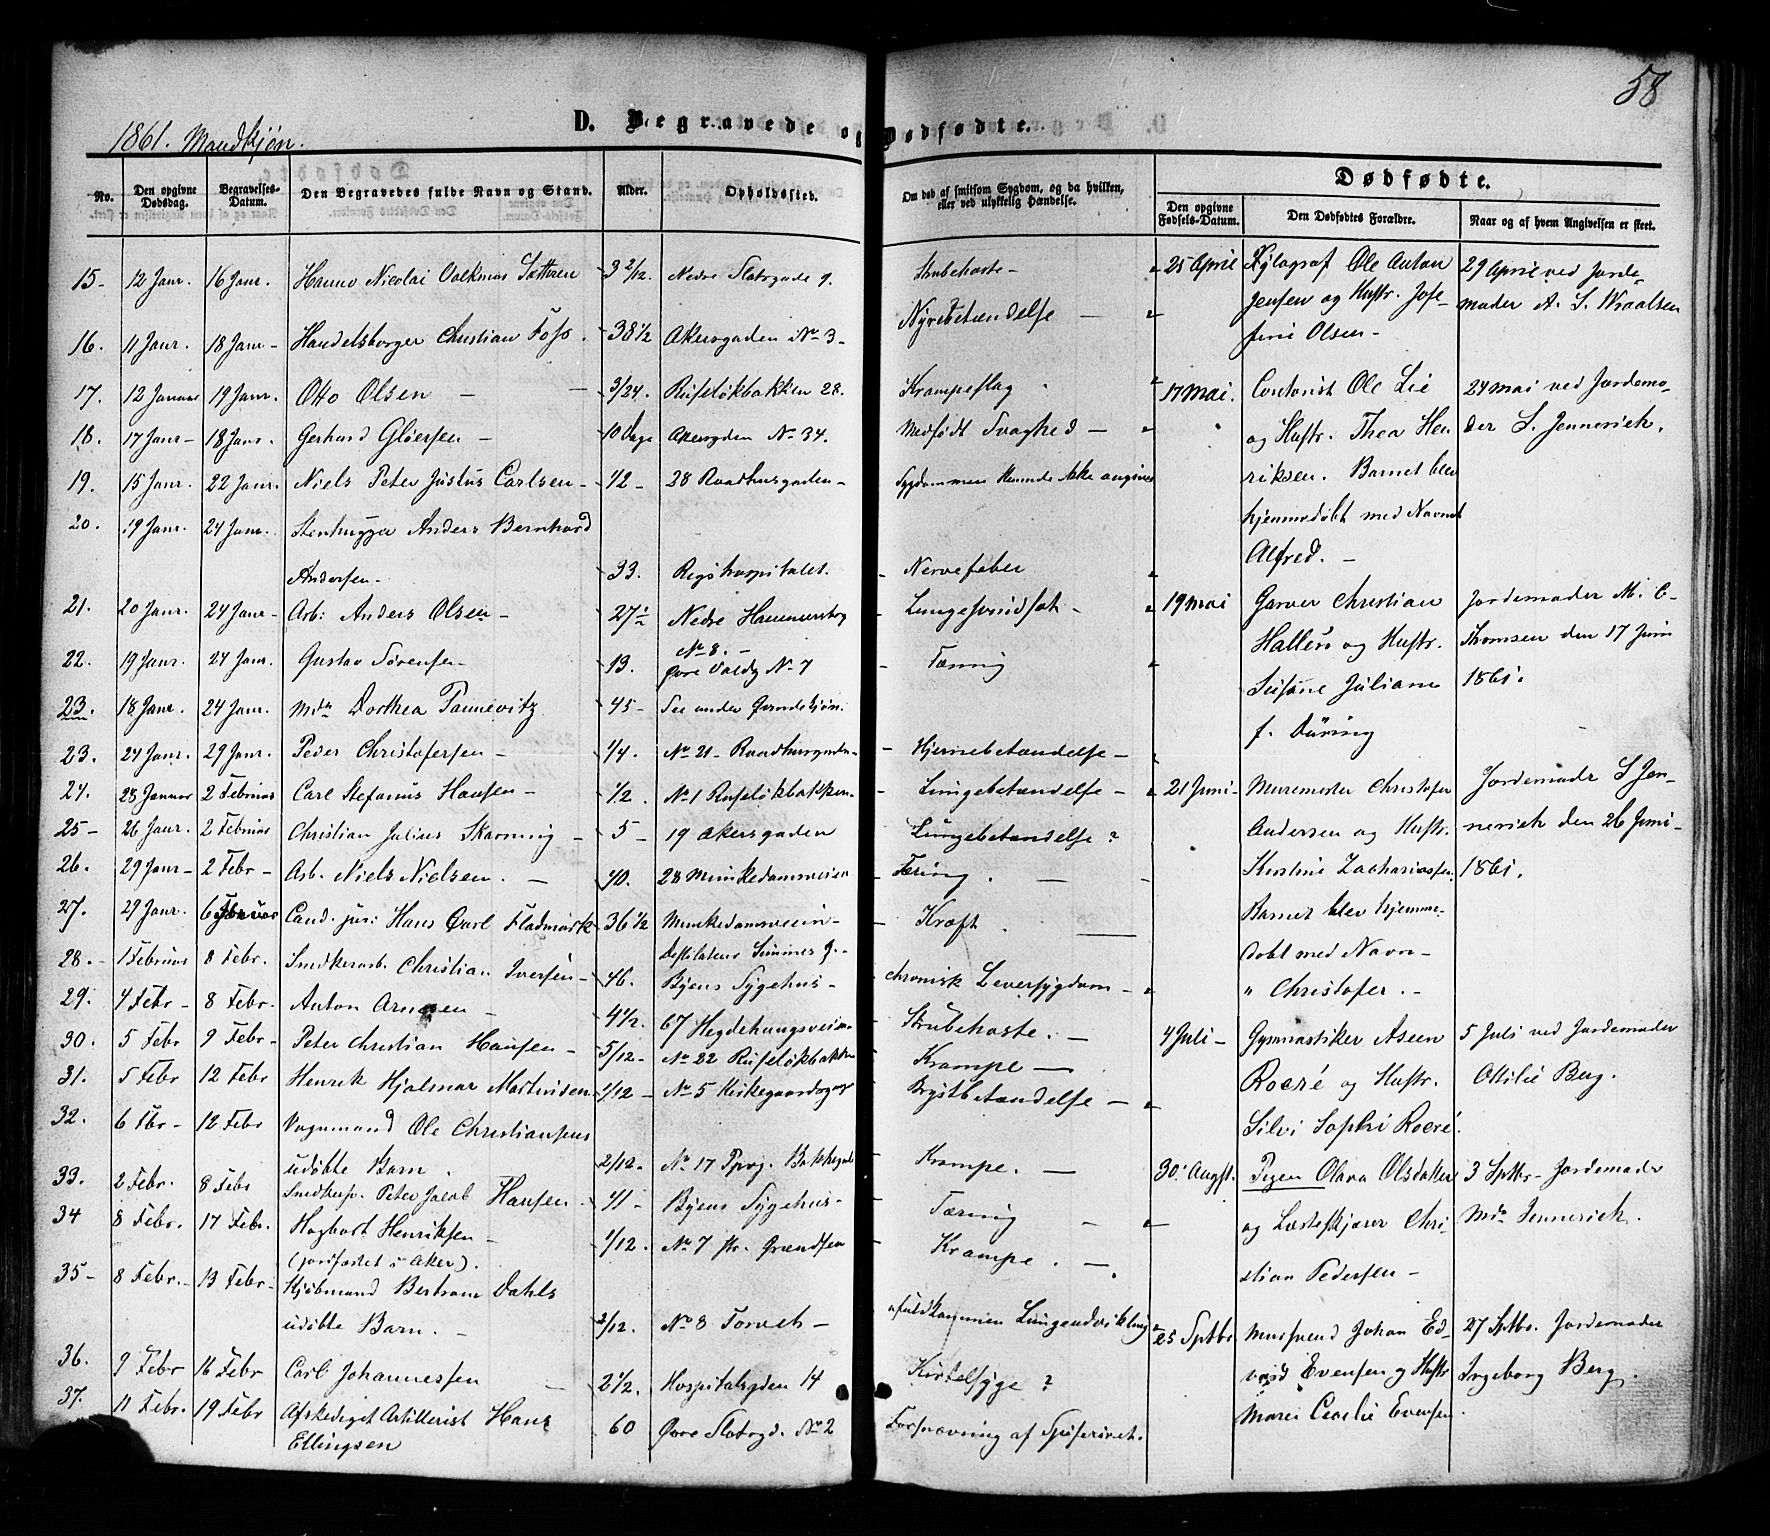 58
D. Begravede og Dødfødte.
1861. Mandkjøn.
No. Den opgivne Dødsdag. Begravelses-Datum. Den Begravedes fulde Navn og Stand. Alder. Opholdssted. Om død af smitsom Sygdom, og da hvilken, eller ved ulykkelig Hændelse.
Dødfødte.
Den opgivne Fødsels-Datum. Den Dødfødtes Forældre. Naar og af hvem Angivelsen er skeet.
15- 12 Janr. 16 Janr. Hanno Nicolai Volkmar 3 2/12. Nedre Slotsgade 9. Strubehoste-
16. 11 Janr. 18 Janr- Handelsborger Christian Foss. 38 1/2 Akersgaden No 3- Nyrebetændelse -
17. 12 Januar 19 Janr. Otto Olsen - 3/24. Ruseløkbakken 28. Krampeslag
18. 17 Janr- 18 Janr. Gerhard Gløersen - 10 Dage Akersgden No 34. Medfødt Svaghed -
19. 15 Janr. 22 Janr. Niels Peter Justus Carlsen- 1/2 - 28 Raadhusgaden- Sygdommen kunde ikke angives
20. 19 Janr. 24 Janr. Stenhugger Anders Bernhard
Andersen- 33. Rigshospitalet. - Nervefeber
21. 20 Janr. 24 Janr- Arb: Anders Olsen - 27 1/2 Nedre Hammersborg Lungesvindsot -
No 8. -
22. 19 Janr. 24 Janr. Gustav Sørensen- 13. Øvre Voldg No 7 - Tæring
23. 18 Janr. 24 Janr. Mda Dorthea Pannevitz 45- See under Qvindekjøn.
23. 24 Janr. 29 Janr. Peder Christofersen - 1/4. No 21- Raadhusgaden- - Hjernebetændelse -
24. 28 Januar 2 Februar Carl Stefanus Hansen - 1/2. No 1 Ruseløkbakken- - Lungebetændelse -
25- 26 Janr. 2 Februar Christian Julius Skavning - 5 - 19 Akersgaden Lungebetændelse ?
26. 29 Janr- 2 Febr- Arb. Niels Nielsen. - 40. 28 Munkedamsveien - Tæring. -
27. 29 Janr. 6 Februar Cand. jur: Hans Carl Fladmark 36 1/2 Munkedamsveien- - Kræft.
28.- 1 Februar 8 Febr. Smedkerarb. Christian Iversen - 46. Byens Sygehus - chronisk Leversygdom -
29. 4 Febr- 8 Febr. Anton Arnesen - 4 1/2. 67 Hegdehaugsveien - Strubehoste. -
30. 5 Febr 9 Febr- Peter Christian Hansen - 5/12- No 22 Ruseløkbakken - Krampe -
31. 5 Febr 12 Febr Henrik Hjalmar Martinsen 1/12 - No 5 Kirkegaardsg Brystbetændelse -
32. 6 Fbr- 12 Febr Vognmand Ole Christiansens
udøbte Barn. 2/12- No 17 Bakkegd Krampe. -
33. 2 Febr. 8 Febr Peter Jacob Hansen. 41 - Byens Sygehus- - Tæring
34 8 Febr. 17 Febr. Hagbart Henriksen - 1/12. No 7 Pr. Grændsen Krampe. -
(jordfæstet i Aker).
35- 8 Febr.- 13 Febr- Kjøbmand Bertram Dahls
udøbte Barn. - 2/12. No 8 Torvet - ufuldkommen Lungeudvikling
36. 9 Febr 16 Febr Carl Johannessen - 2 1/2. Hospitalsgden 14 Kirtelsyge ?
37. 11 Febr. 19 Febr Afskediget Artillerist Hans 60 Øvre Slotsgd. No 2 Forsnævring af Spiserøret.
Ellingsen
25 April Xylograf Ole Anton 29 April ved Jorde-
Jensen og Hustr. Jose- moder A. S. Wraalsen
fine Olsen-
17 Mai. Contorist Ole Lie 24 Mai ved Jordemo-
og Hustr. Thea Hen der S. Jennerich.
riksen. Barnet blev
hjemmedøbt med Navnet
Alfred. -
19 Mai Garver Christian Jordemoder M. C-
og Hustr. Thomsen den 17 Juni
Susane Juliane 1861.
f. Düring
21 Juni- Muremester Christofer Jordemoder S Jen-
Andersen og Hustr. nerich den 26 Juni-
Kirstine Zachariassen. 1861.
Barnet blev hjemme-
døbt med Navn-
" Christofer. -
4 Juli - Gymnastiker 5 Juli ved Jordemoder
Roeré og Hustr. Ottilie Berg.
Silvi Sophi Roeré.
30. Augst. Pigen Olava Olsdatter 3 Sptbr- Jordemoder
og Læsteskjærer Chri Mda Jennerich.
stian Pedersen -
25 Sptbr Mursvend Johan Ed- 27 Sptbr. Jordemoder
vard Evensen og Hustr Ingeborg Berg.
Maria Cecilie Evensen.